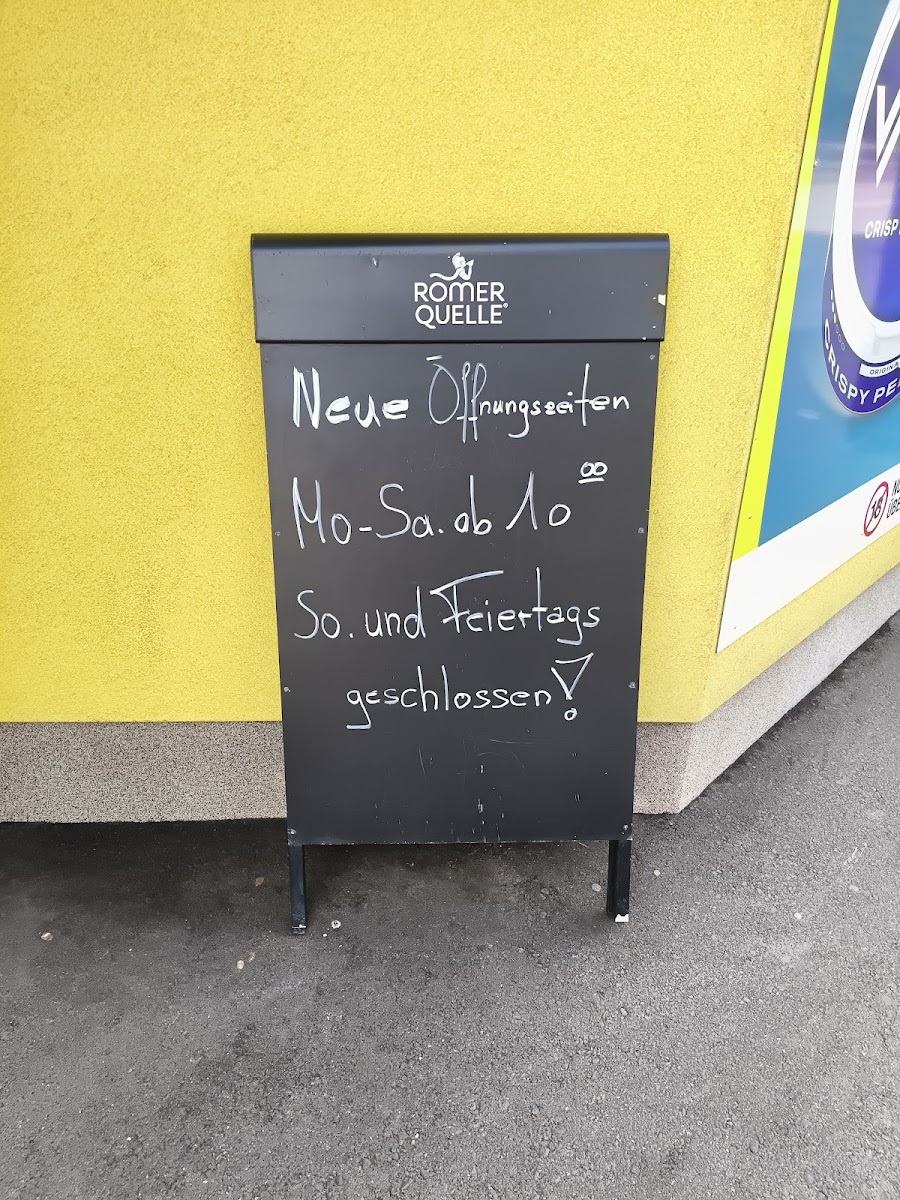 RÖMER
QUELLE®
Neue Öffnungszeiten
Mo-Sa. ab 10 00
So. und Feiertags
geschlossen!
CRISP
ORIGIN
CRISPY PE
18
NU
ÜBE